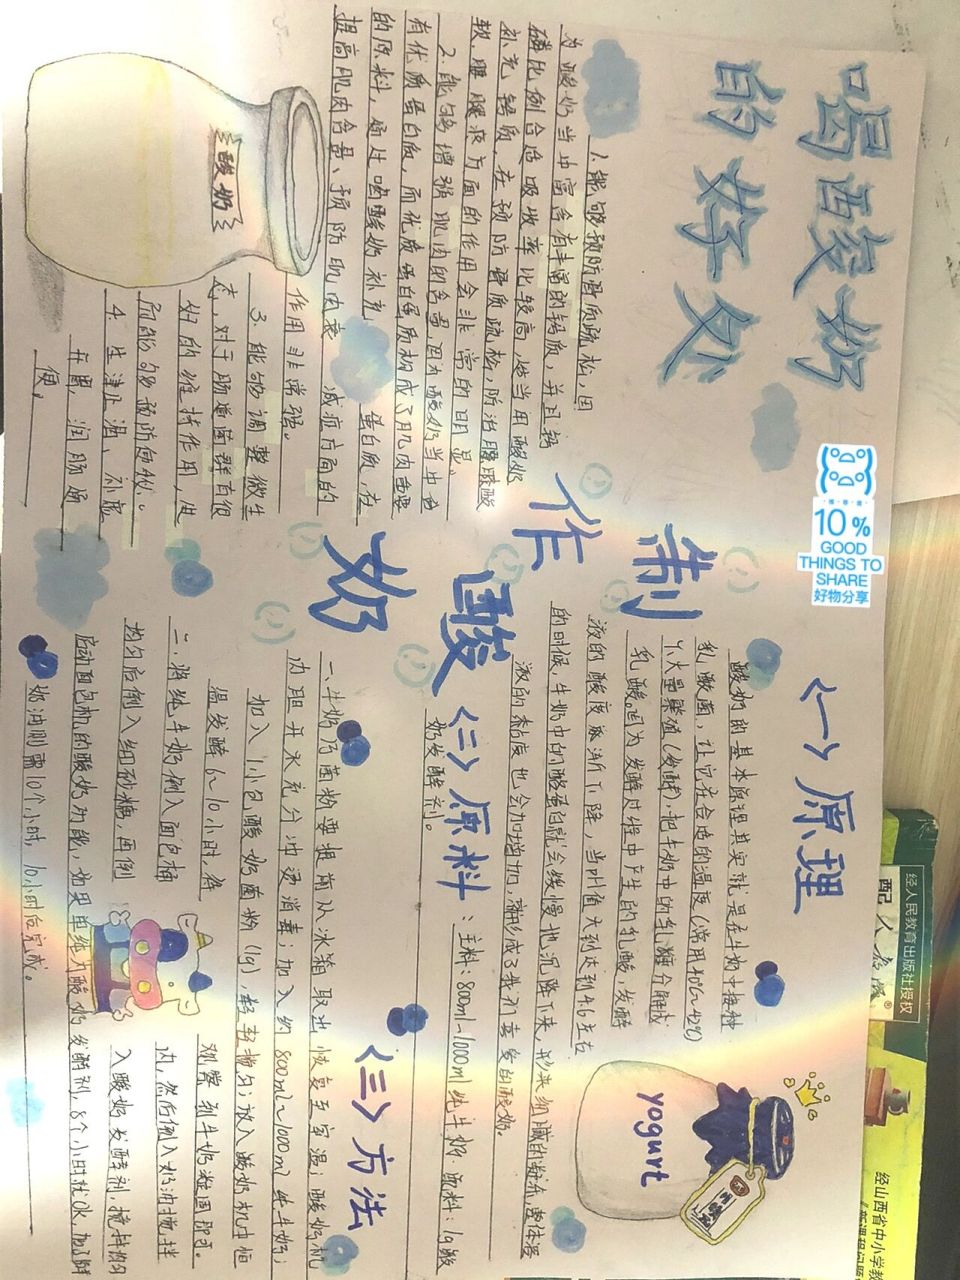 喝酸奶
的好处
1.能够预防骨质疏松,因
为酸奶当中富含有丰富的钙质,并且钙
磷比例合适吸收率比较高,适当用酸奶
补充钙质,在预防骨质疏松,防治腰膝酸
软,腰腿疼方面的作用会非常的明显。
2.能够增强肌肉的含量,因为酸奶当中含
有优质蛋白质,而优质蛋白强质构成了肌肉重要
的原料,通过喝酸奶补充蛋白质,在
提高肌肉含量、预防肌肉衰减症方面的
作用非常强。
3.能够调整微生
态,对于肠道菌群有很
好的维持作用,进
而能够预防便秘。
4.生津止渴、补虚
开胃,润肠通
便。
酸奶
制
作
酸
奶
<一>原理
酸奶的基本原理其实就是在牛奶中接种
乳酸菌,让它在合适的温度(常用40℃~42℃)
下大量繁殖(发酵),把牛奶中的乳糖分解成
乳酸。因为发酵过程中产生的乳酸,发酵
液的酸度逐渐下降,当pH值大到达到4.6左右
的时候,牛奶中的酪蛋白就会缓慢地沉降下来,形成细腻的凝冻,整体溶
液的黏度也会加增加,就形成了我们喜爱的酸奶。
<二>原料:主料:800ml~1000ml纯牛奶.配料:1g酸
奶发酵剂。
<三>方法
一、牛奶巧菌粉要提前从冰箱取出,恢复至室温;酸奶机
内胆开水充分冲烫消毒;加入约800ml~1000ml纯牛奶;
加入1小包酸奶菌粉(1g),轻轻搅匀;放入酸奶机中恒
温发酵6~10小时,待观察到牛奶凝固即可。
二、将纯牛奶倒入面包桶内,然后倒入奶油搅拌
均匀后倒入细砂糖,再倒入酸奶发酵剂,搅拌均匀
启动面包机的酸奶功能,如果单纯为酸奶发酵剂,8个小时就OK,加了鲜
奶油则需10个小时,10小时后完成。
yogurt
10%
GOOD
THINGS TO
SHARE
好物分享
经人民教育出版社授权
配人教版®
经山西省中小学教
《新课程问题